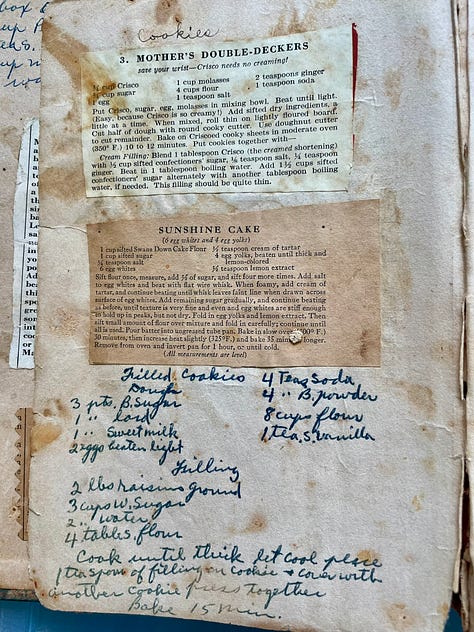 Cookies
3. MOTHER'S DOUBLE-DECKERS
save your wrist—Crisco needs no creaming!
cup Crisco 1 cup molasses 2 teaspoons ginger
cup sugar 4 cups flour 1 teaspoon soda
1 egg 1 teaspoon salt
Put Crisco, sugar, egg, molasses in mixing bowl. Beat until light.
(Easy, because Crisco is so creamy!) Add sifted dry ingredients, a
little at a time. When mixed, roll thin on lightly floured board.
Cut half of dough with round cooky cutter. Use doughnut cutter
to cut remainder. Bake on Criscoed cooky sheets in moderate oven
(350° F.) 10 to 12 minutes. Put cookies together with—
Cream Filling: Blend 1 tablespoon Crisco (the creamed shortening)
with ½ cup sifted confectioners' sugar, ⅛ teaspoon salt, ¼ teaspoon
ginger. Beat in 1 tablespoon boiling water. Add 1½ cups sifted
confectioners' sugar alternately with another tablespoon boiling
water, if needed. This filling should be quite thin.
SUNSHINE CAKE
(6 egg whites and 4 egg yolks)
1 cup sifted Swans Down Cake Flour ½ teaspoon cream of tartar
1 cup sifted sugar 4 egg yolks, beaten until thick and
teaspoon salt lemon-colored
6 egg whites ½ teaspoon lemon extract
Sift flour once, measure, add ⅔ of sugar, and sift four more times. Add salt
to egg whites and beat with flat wire whisk. When foamy, add cream of
tartar, and continue beating until whisk leaves faint line when drawn across
surface of egg whites. Add remaining sugar gradually, and continue beating
as before, until texture is very fine and even and egg whites are stiff enough
to hold up in peaks, but not dry. Fold in egg yolks and lemon extract. Then
sift small amount of flour over mixture and fold in carefully; continue until
all is used. Pour batter into ungreased tube pan. Bake in slow oven F.)
30 minutes, then increase heat slightly (325°F.) and bake 35 longer.
Remove from oven and invert pan for 1 hour, or until cold.
(All measurements are level)
Filled Cookies
Dough
3 pts. B. Sugar
1 " lard
1 " Sweet milk
2 eggs beaten light
4 Teas Soda
4 " B. powder
8 cups flour
1 tea. S. Vanilla
Filling
2 lbs raisins ground
3 cups W. Sugar
2 " water
4 tables. flour
Cook until thick let cool place
1 teaspoon of filling on cookie & cover with
another cookie press together
Bake 15 min.